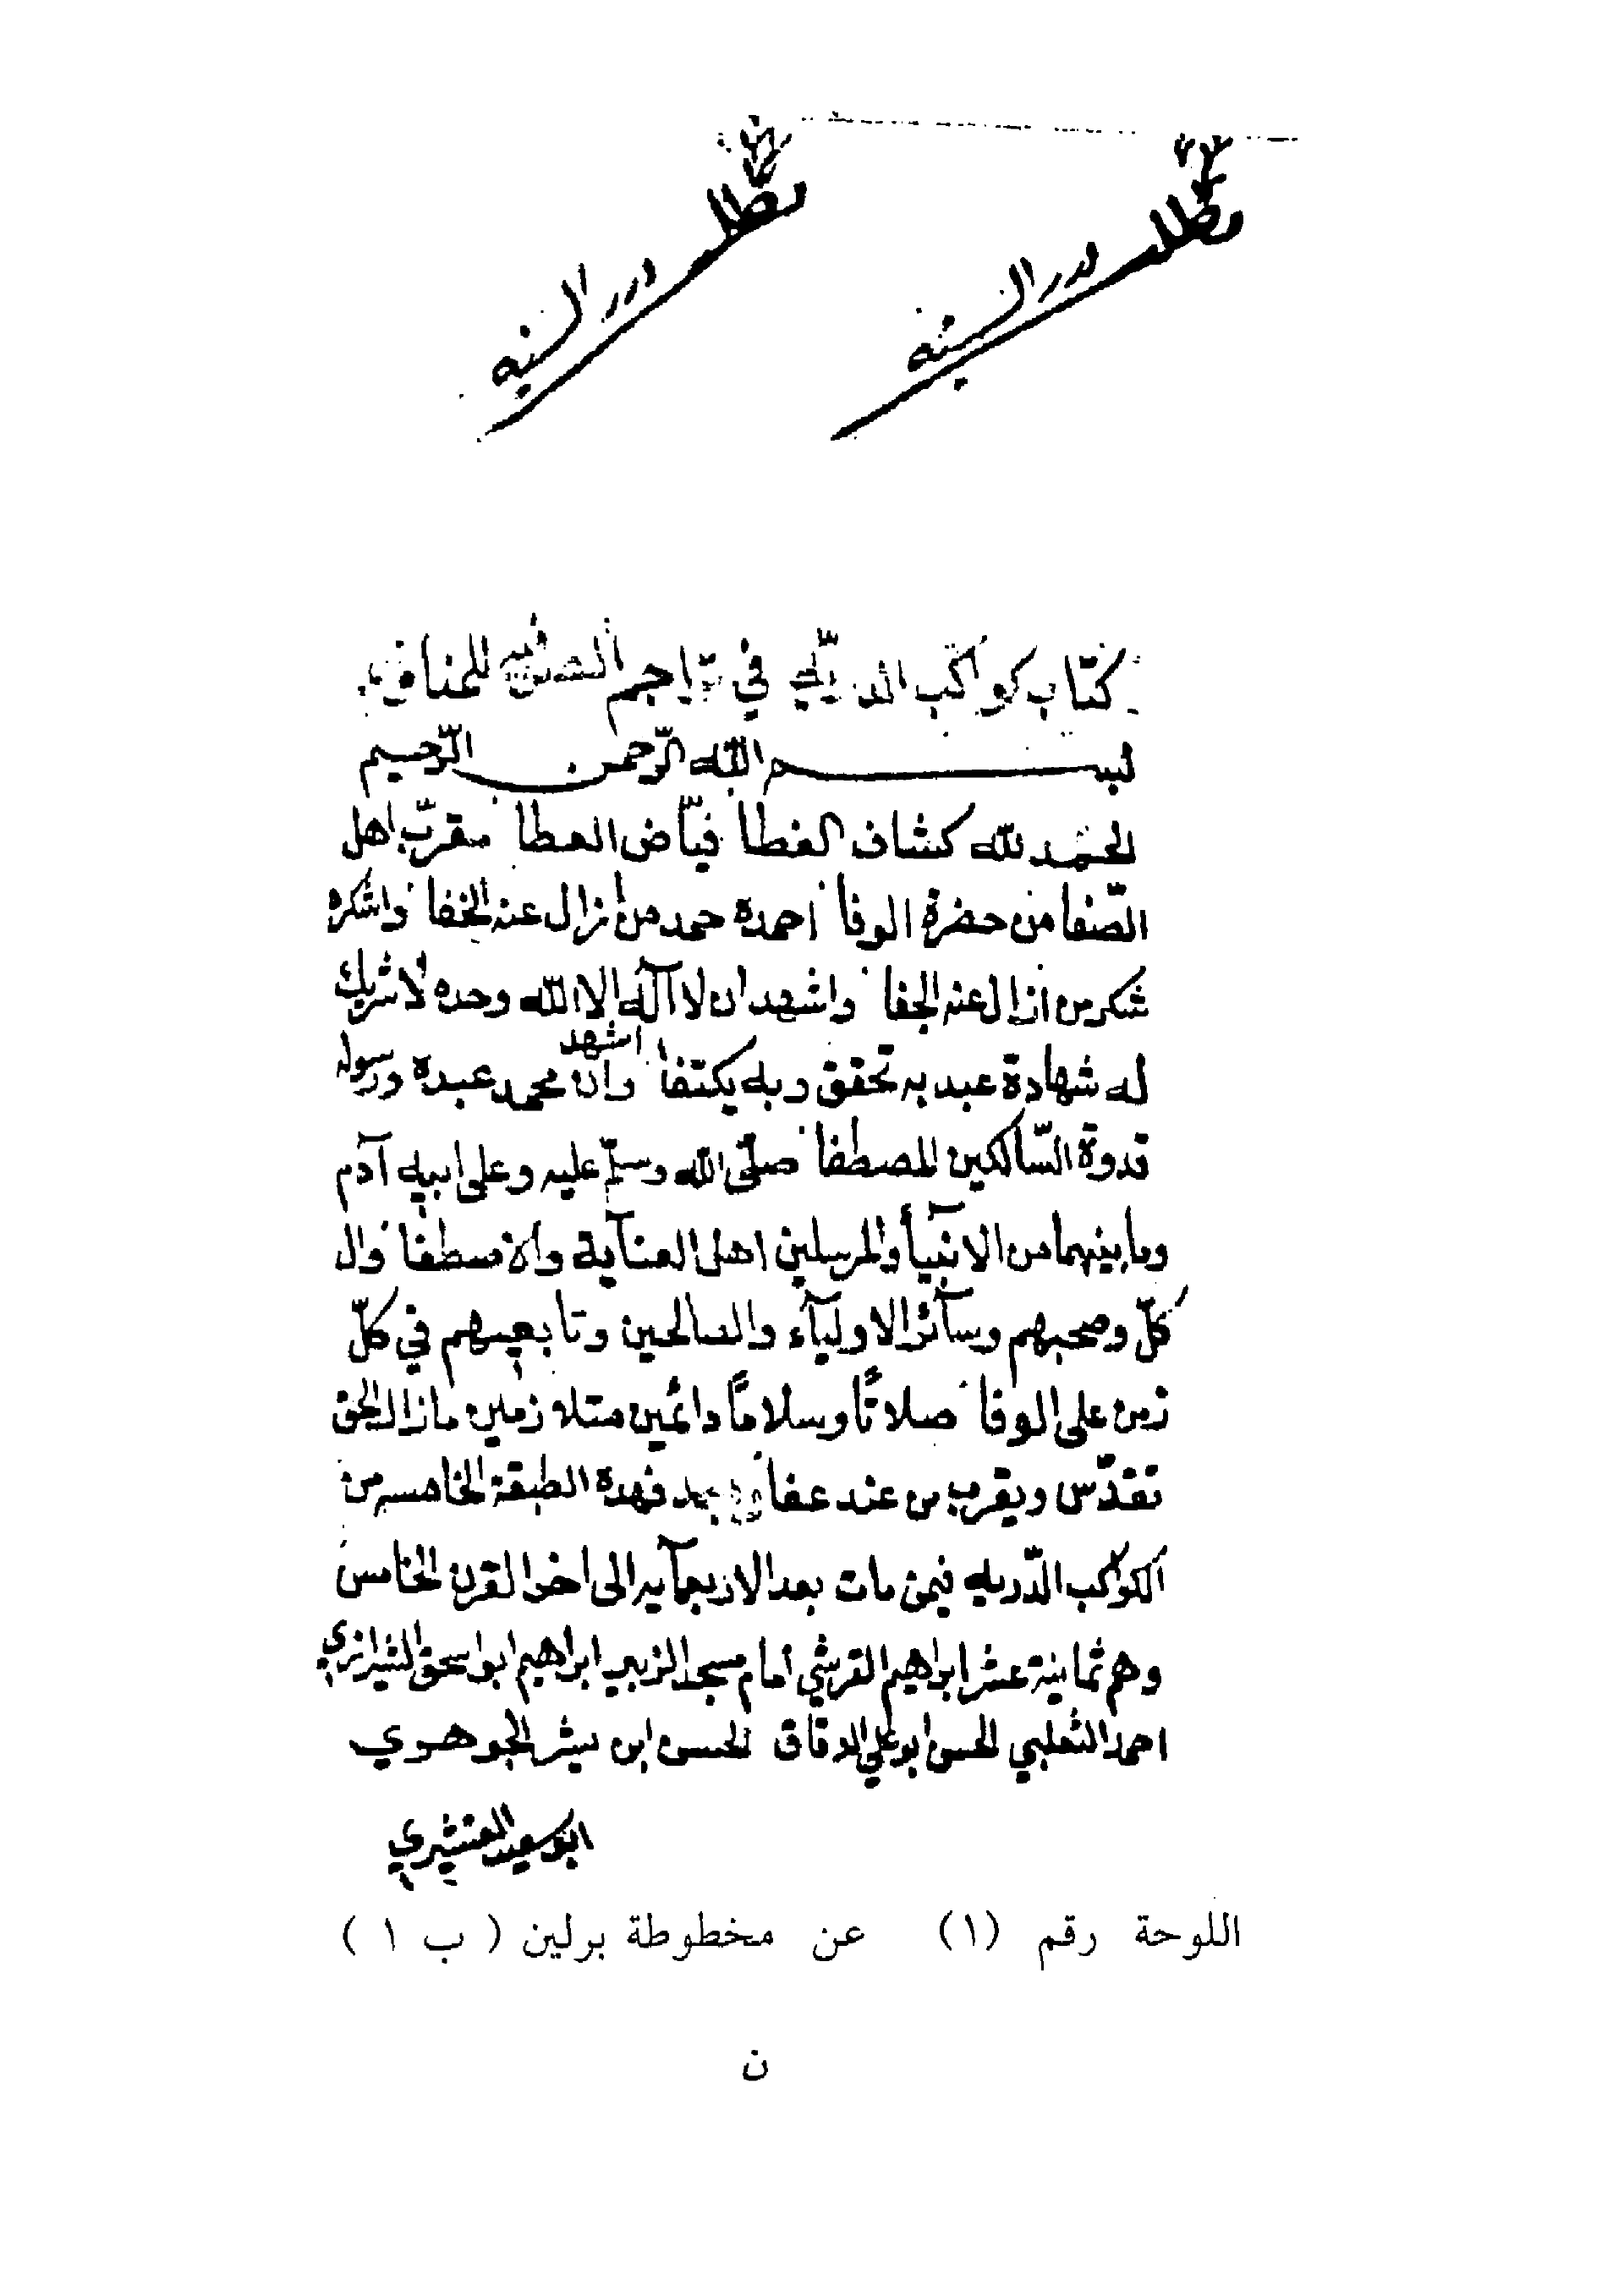 مطلب
درر السنيه
مطلب
درر السنيه
كتاب كواكب الدريه في تراجم للمناوي
بسم الله الرحمن الرحيم
الحمد لله كشاف الغطا فيّاض العطا مقرّب اهل
الصّفا من حضرة الوفا احمده حمد من ازال عنه الخفا واشكره
شكر من ازال عنه الجفا واشهد ان لا آله الا الله وحده لا شريك
له شهادة عبد به تحقق وبه يكتفا وان اشهد محمد عبده ورسوله
قدوة السّالكين المصطفا صلّى الله وسلّم عليه وعلى ابيه آدم
وما بينهما من الانبيآ والمرسلين اهل العنآية والاصطفا وال
كلّ وصحبهم وسآئر الاوليآء والصالحين وتابعيهم في كلّ
زمن على الوفا صلاتًا وسلامًا دائمين متلازمين مازال الحق
تقدّس ويقرب من عند عفا وبعد فهده الطبقة الخامسه من
الكواكب الدّريه فيمن مات بعد الاربعمآيه الى اخر القرن الخامس
وهم ثمانية عشر ابراهيم القرشي امام مسجد الزبير ابراهيم ابو اسحق الشيرازي
احمد الثعلبي الحسن ابو علي الدقاق الحسن ابن بشر الجوهري
ابو سعيد القشيري
اللوحة رقم (١) عن مخطوطة برلين ( ب ١ )
ن